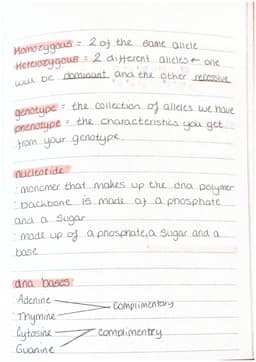 Homozygous = 2 of the same allele
Heterozygous = 2 different alleles ← one
will be dominant and the other recessive
genotype = the collection of alleles we have
phenotype = the characteristics you get
from your genotype.
nucleotide
· monomer that makes up the dna polymer
· backbone is made of a phosphate
and a sugar
· made up of a phosphate, a sugar and a
base
dna bases
Adenine
Complimentary
Thymine
Cytosine
complimentry
Guanine